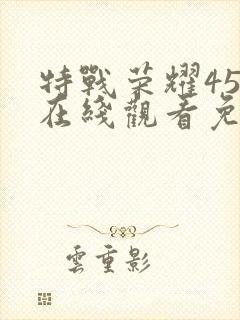 特戰榮耀45
在綫觀看免
雲重影